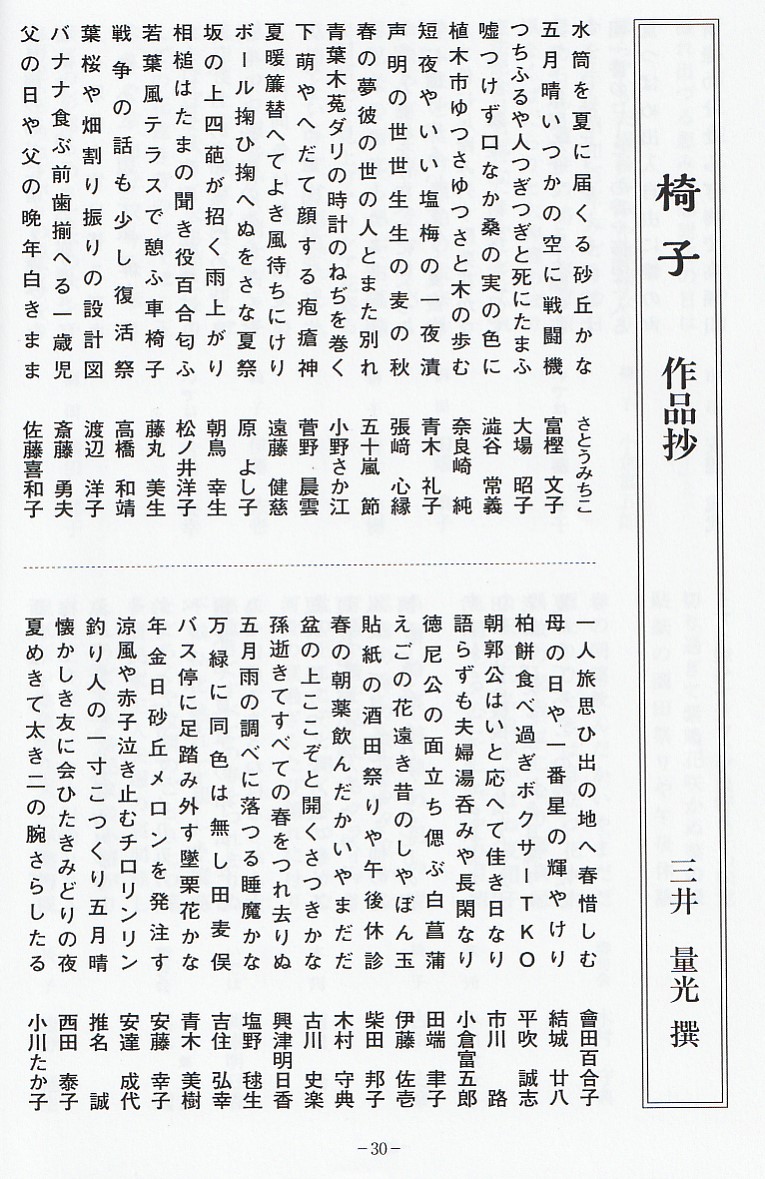 椅子 作品抄 三井 量光 撰
水筒を夏に届くる砂丘かな さとうみちこ
五月晴いつかの空に戦闘機 富樫 文子
つちふるや人つぎつぎと死にたまふ 大場 昭子
嘘つけず口なか桑の実の色に 澁谷 常義
植木市ゆつさゆつさと木の歩む 奈良崎 純
短夜やいい塩梅の一夜漬 青木 礼子
声明の世世生生の麦の秋 張﨑 心縁
春の夢彼の世の人とまた別れ 五十嵐 節
青葉木菟ダリの時計のねぢを巻く 小野さか江
下萌やへだて顔する疱瘡神 菅野 晨雲
夏暖簾替へてよき風待ちにけり 遠藤 健慈
ボール掬ひ掬へぬをさな夏祭 原 よし子
坂の上四葩が招く雨上がり 朝鳥 幸生
相槌はたまの聞き役百合匂ふ 松ノ井洋子
若葉風テラスで憩ふ車椅子 藤丸 美生
戦争の話も少し復活祭 高橋 和靖
葉桜や畑割り振りの設計図 渡辺 洋子
バナナ食ぶ前歯揃へる一歳児 斎藤 勇夫
父の日や父の晩年白きまま 佐藤喜和子
一人旅思ひ出の地へ春惜しむ 會田百合子
母の日や一番星の輝やけり 結城 廿八
柏餅食べ過ぎボクサーTKO 平吹 誠志
朝郭公はいと応へて佳き日なり 市川 路
語らずも夫婦湯呑みや長閑なり 小倉富五郎
徳尼公の面立ち偲ぶ白菖蒲 田端 聿子
えごの花遠き昔のしやぼん玉 伊藤 佐壱
貼紙の酒田祭りや午後休診 柴田 邦子
春の朝薬飲んだかいやまだだ 木村 守典
盆の上ここぞと開くさつきかな 古川 史楽
孫逝きてすべての春をつれ去りぬ 興津明日香
五月雨の調べに落つる睡魔かな 塩野 毬生
万緑に同色は無し田麦俣 吉住 弘幸
バス停に足踏み外す墜栗花かな 青木 美樹
年金日砂丘メロンを発注す 安藤 幸子
涼風や赤子泣き止むチロリンリン 安達 成代
釣り人の一寸こつくり五月晴 推名 誠
懐かしき友に会ひたきみどりの夜 西田 泰子
夏めきて太き二の腕さらしたる 小川たか子
－30－